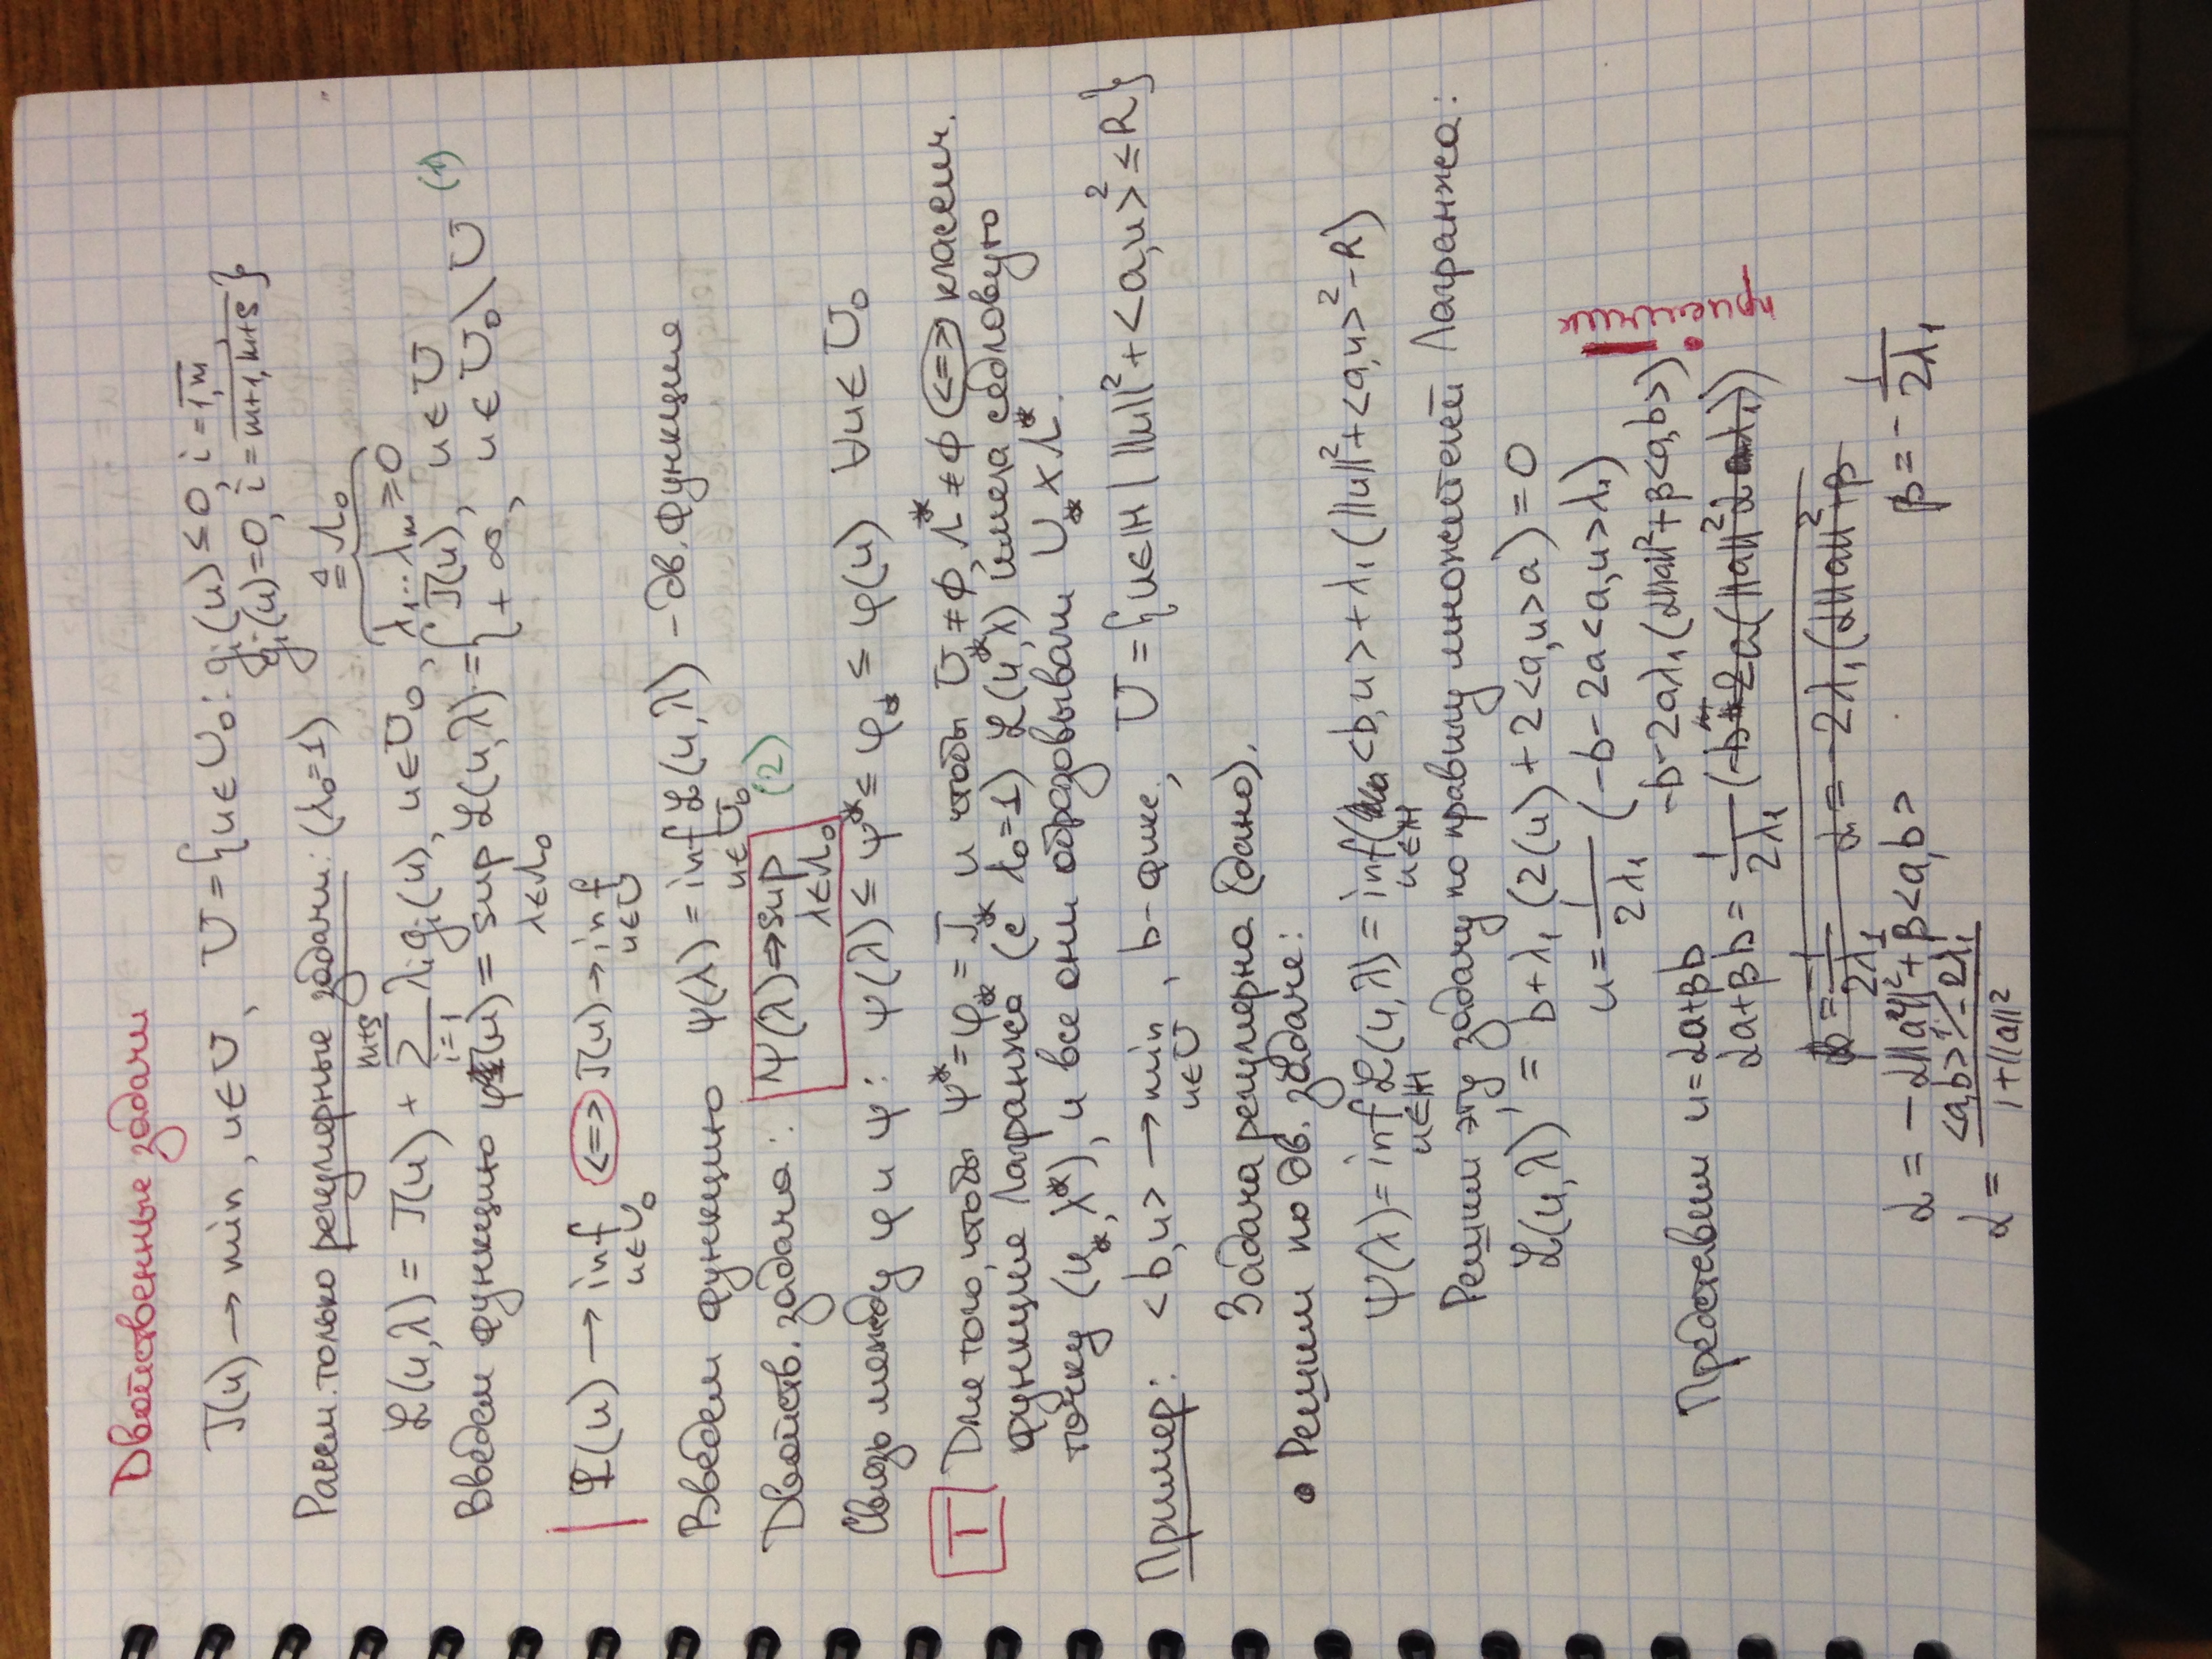 Двойственные задачи
J(u) → min, u ∈ U, U = {u ∈ U₀: gᵢ(u) ≤ 0, i = 1,m
gᵢ(u) = 0, i = m+1, m+s}
Рассм. только регулярные задачи: (λ₀=1) ≜ Λ₀
ℒ(u,λ) = J(u) + Σᵢ₌₁ᵐ⁺ˢ λᵢgᵢ(u), u ∈ U₀, λ₁...λₘ ≥ 0
Введем функцию φ(u) = sup ℒ(u,λ) = { J(u), u ∈ U (1)
λ ∈ Λ₀ +∞, u ∈ U₀\U
φ(u) → inf <=> J(u) → inf
u ∈ U₀ u ∈ U
Введем функцию ψ(λ) = inf ℒ(u,λ) – дв. функция
u ∈ U₀
Двойств. задача: ψ(λ) → sup (2)
λ ∈ Λ₀
Связь между φ и ψ: ψ(λ) ≤ ψ* ≤ φ* ≤ φ(u) ∀u ∈ U₀
T Для того, чтобы ψ* = φ* = J* и чтобы U* ≠ ф, Λ* ≠ ф <=> классич.
функция Лагранжа (с λ₀=1) ℒ(u,λ) имела седловую
точку (u*, λ*), и все они образовывали U* × Λ*.
Пример: <b,u> → min, b – фикс., U = {u ∈ H | ||u||² + <a,u>² ≤ R}
u ∈ U
Задача регулярна (дано).
• Решим по дв. задаче:
ψ(λ) = inf ℒ(u,λ) = inf( <b,u> + λ₁(||u||² + <a,u>² - R)
u ∈ H u ∈ H
Решим эту задачу по правилу множителей Лагранжа:
ℒ(u,λ)' = b + λ₁(2(u) + 2<a,u>a) = 0
u = 1/2λ₁ (-b - 2a<a,u>λ₁)
-b - 2aλ₁(α||a||² + β<a,b>)
Представим u = αa + βb
αa + βb = 1/2λ₁ (-b - 2a(||a||²αaλ₁))
β = 1/2λ₁ α = -2λ₁(α||a||² + β
α = -α||a||² + β<a,b> β = -1/2λ₁
α = <a,b> 1/-2λ₁ / 1+||a||²